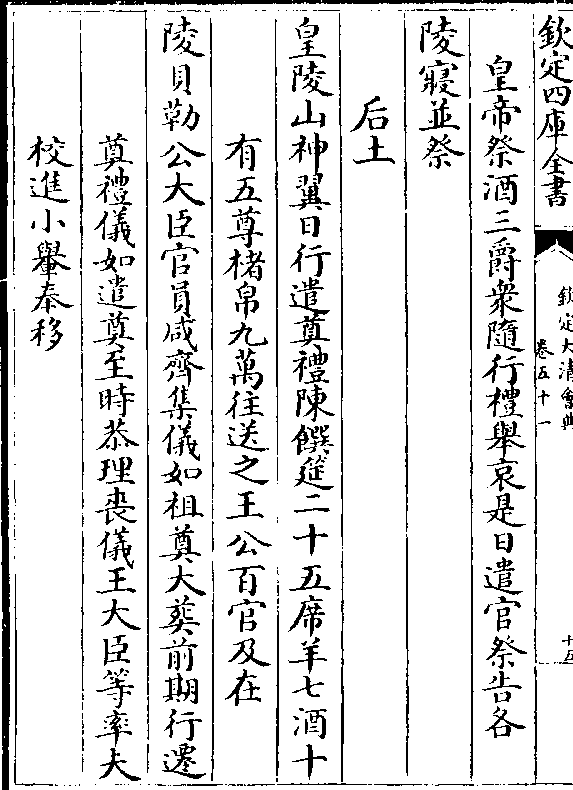 欽定四庫全書
欽定大清會典
卷五十一
十五
皇帝祭酒三爵衆隨行禮舉哀是日遣官祭告各
陵寢並祭
后土
皇陵山神翼日行遣奠禮陳饌筵二十五席羊七酒十
有五尊楮帛九萬往送之王公百官及在
陵貝勒公大臣官員咸齊集儀如祖奠大葬前期行遷
奠禮儀如遣奠至時恭理喪儀王大臣等率夫
校進小轝奉移